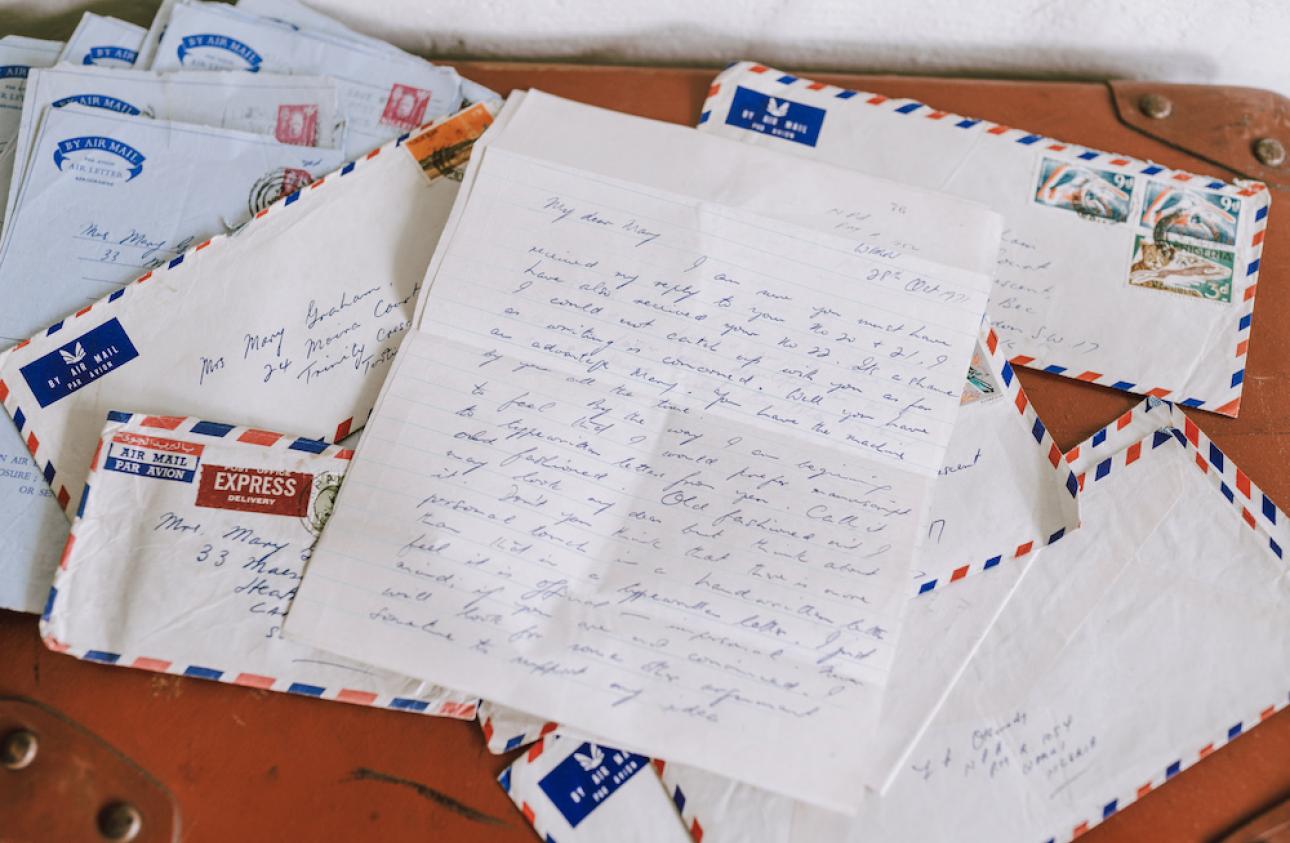 BY AIR MAIL
BY AIR MAIL
BY AIR MAIL
AIR LETTER
BY AIR MAIL
PAR AVION
AIR LETTER
AEROGRAMME
Mrs Mary G
33
Mrs Mary Graham
24 Moira Court
Trinity Cresc
BY AIR MAIL
PAR AVION
AIR MAIL
PAR AVION
POST OFFICE
EXPRESS
DELIVERY
Mrs. Mary
33
BY AIR MAIL
PAR AVION
9d
9d
NIGERIA
3d
S.W. 17
NPA
WARRI
28th Oct 1971
My dear Mary
I am sure you must have
received my reply to your No 20 + 21, I
have also received your No 22. It's a shame
I could not catch up with you as far
as writing is concerned. Well you have
an advantage Mary. You have the machine
by you all the time.
By the way I am beginning
to feel that I would prefer manuscript
to typewritten letters from you. Call it
old fashioned. Old fashioned as I
may look my dear but think about
it. Don't you think that there is more
personal touch in a handwritten letter
than that in a typewritten letter. I just
feel it is official — impersonal. Never
mind, if you are not convinced. I
will look for some other argument
sometime to support my idea.
escent
17
BY AIR MAIL
PAR AVION
NPA
WARRI
NIGERIA